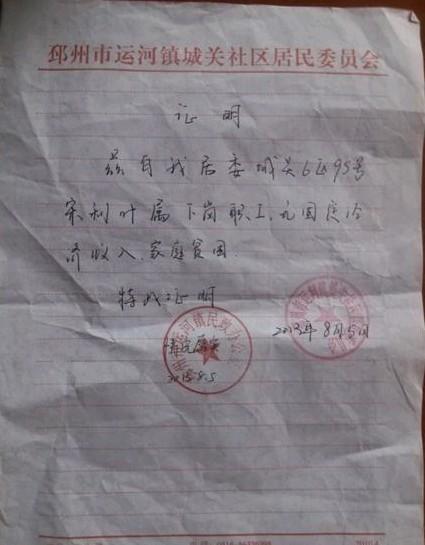 邳州市运河镇城关社区居民委员会
证明
兹有我居委城关6区95号
宋利叶属下岗职工,无固定经
济收入,家庭贫困.
特此证明
2013年8月5日
情况属实
2013.8.5
运河镇民政办公